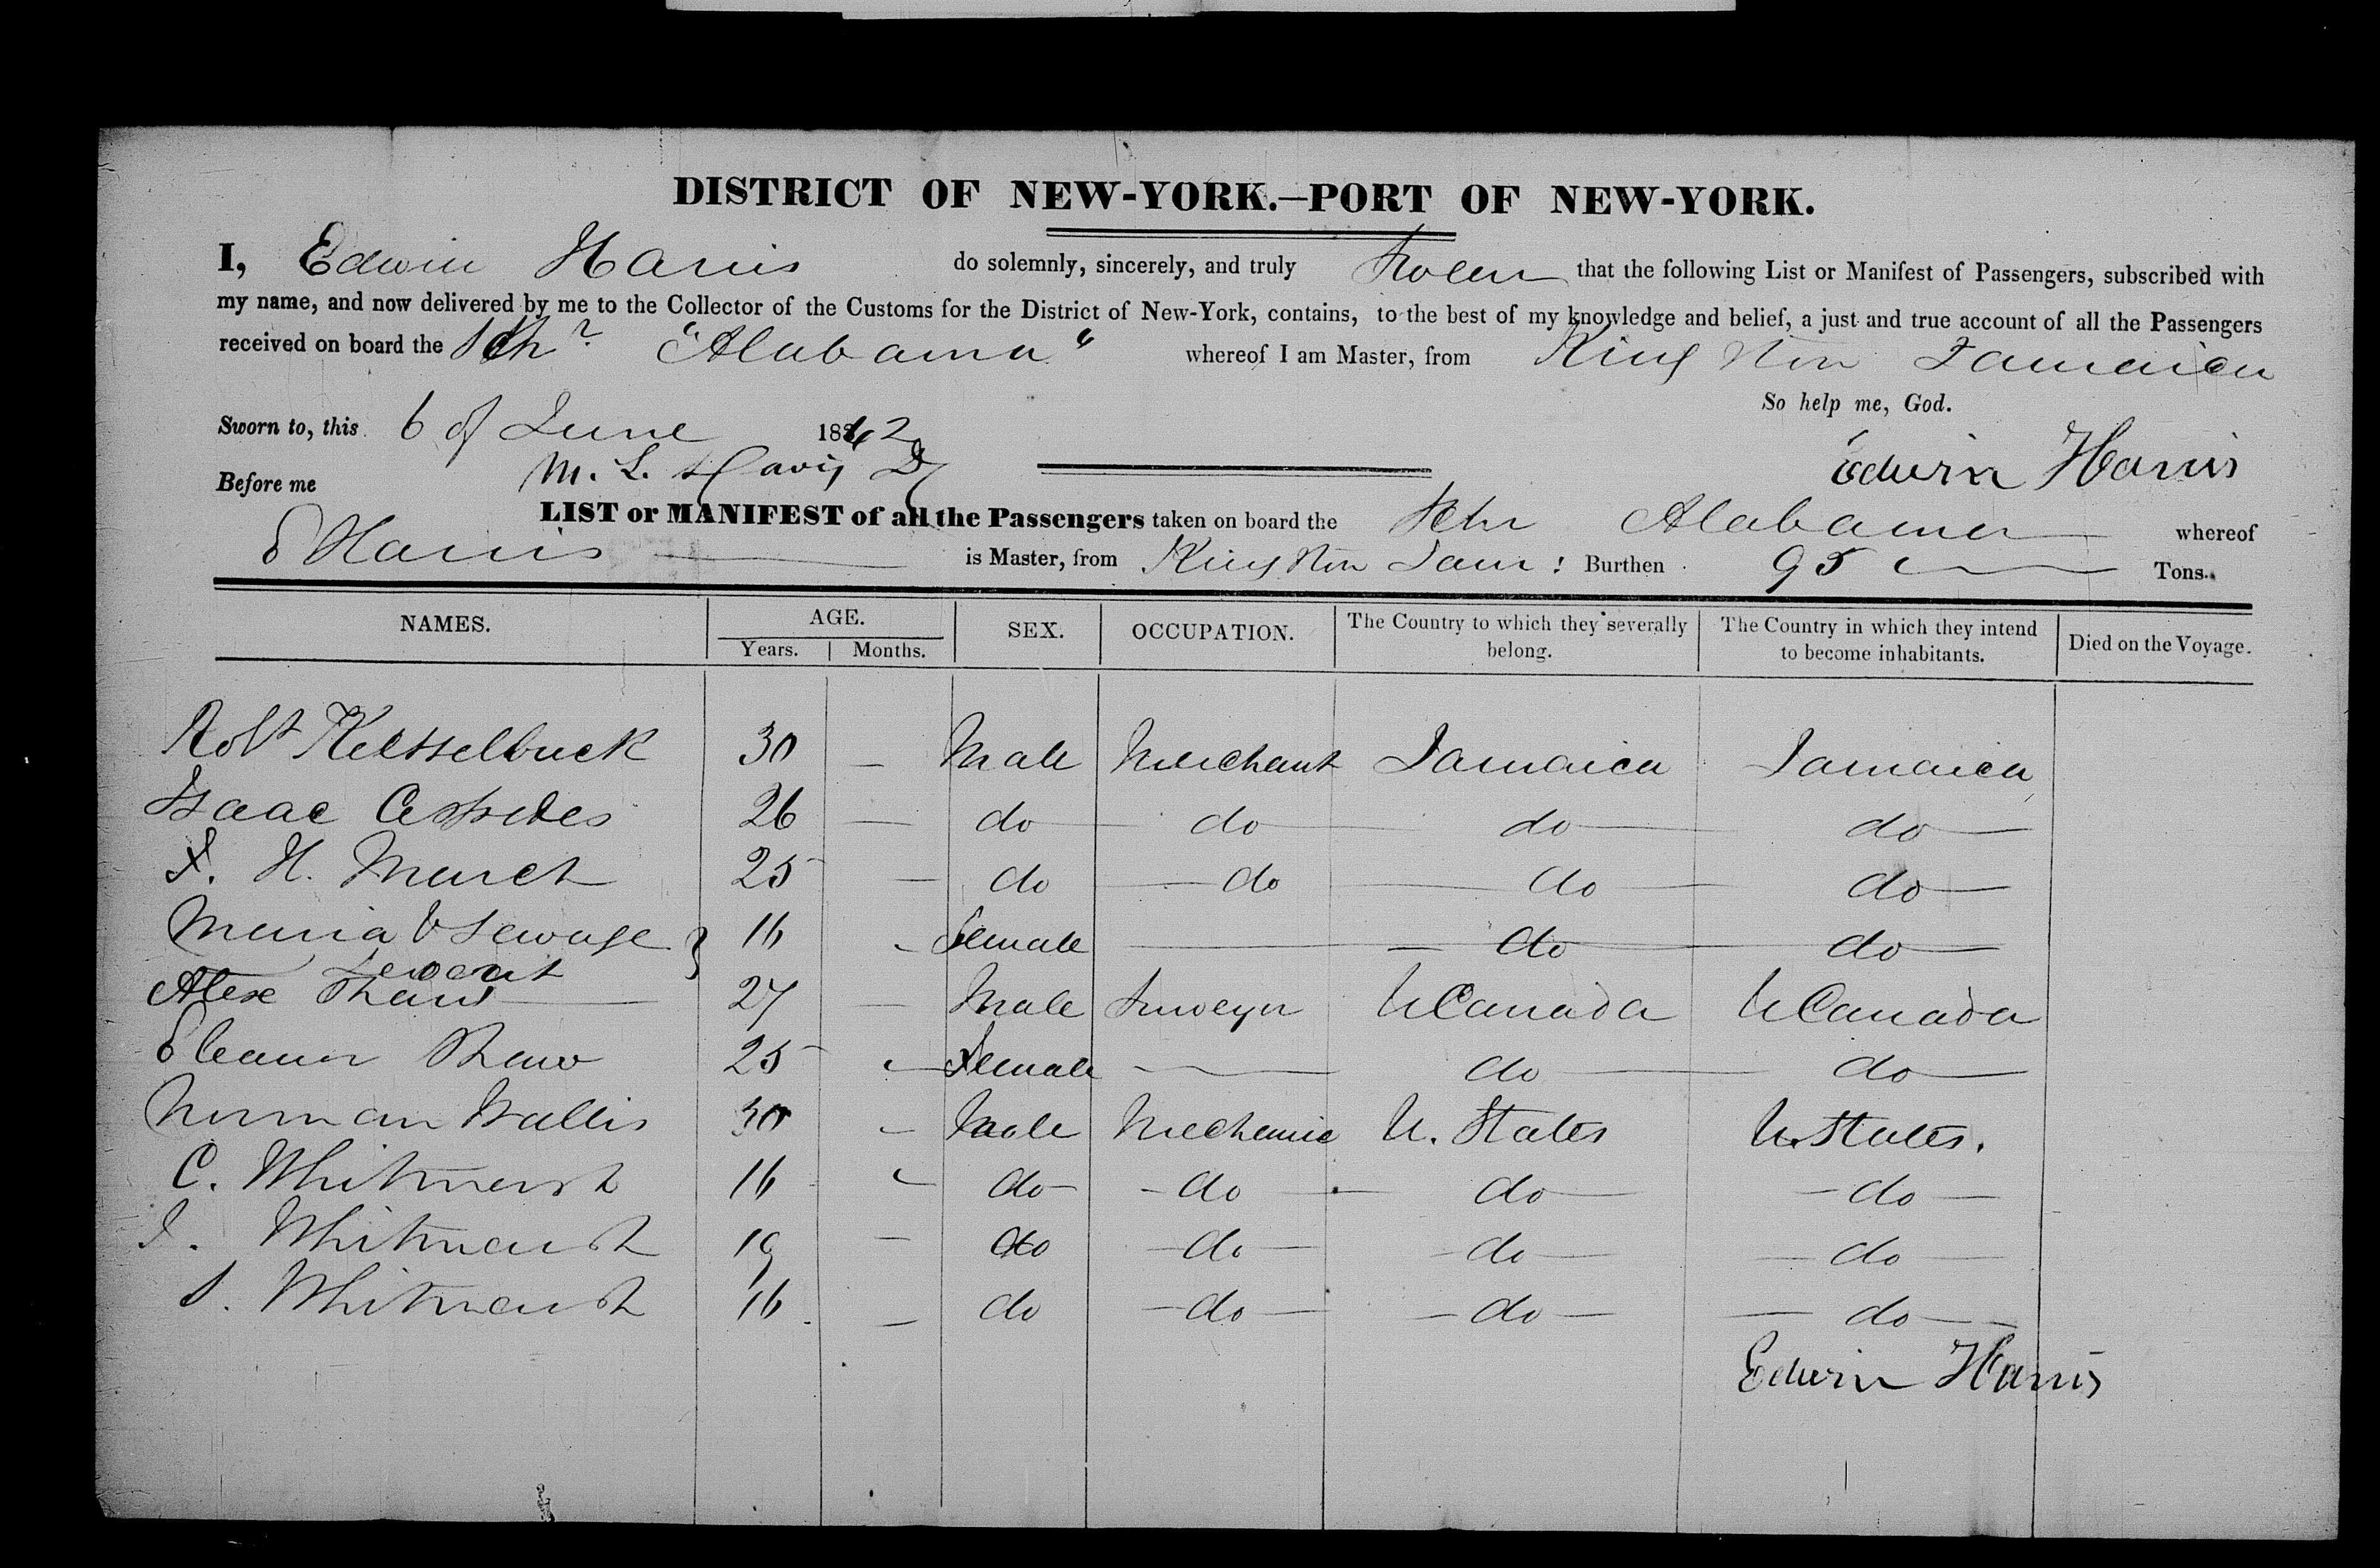 DISTRICT OF NEW-YORK.—PORT OF NEW-YORK.
I, Edwin Harris do solemnly, sincerely, and truly that the following List or Manifest of Passengers, subscribed with
my name, and now delivered by me to the Collector of the Customs for the District of New-York, contains, to the best of my knowledge and belief, a just and true account of all the Passengers
received on board the Schr "Alabama" whereof I am Master, from Kingston Jamaica
So help me, God.
Sworn to, this 6 of June 1842
Edwin Harris
Before me M. L. Davis
LIST or MANIFEST of all the Passengers taken on board the Schr Alabama whereof
E Harris is Master, from Kingston Jam: Burthen 95 Tons.
NAMES. AGE. SEX. OCCUPATION. The Country to which they severally belong. The Country in which they intend to become inhabitants. Died on the Voyage.
Years. Months.
Robt 30 — Male Merchant Jamaica Jamaica
Isaac 26 — do do do do
H. March 25 — do do do do
Maria 16 - Female — do do
Servant
Alex Shaw 27 — Male Surveyr U Canada U Canada
Eleanor Shaw 25 — Female — do do
Norman Wallis 30 - Male Mechanic U. States U. States.
C. Whitmarsh 16 - do do do do
J. Whitmarsh 19 - do do do do
S. Whitmarsh 16 — do do do do
Edwin Harris